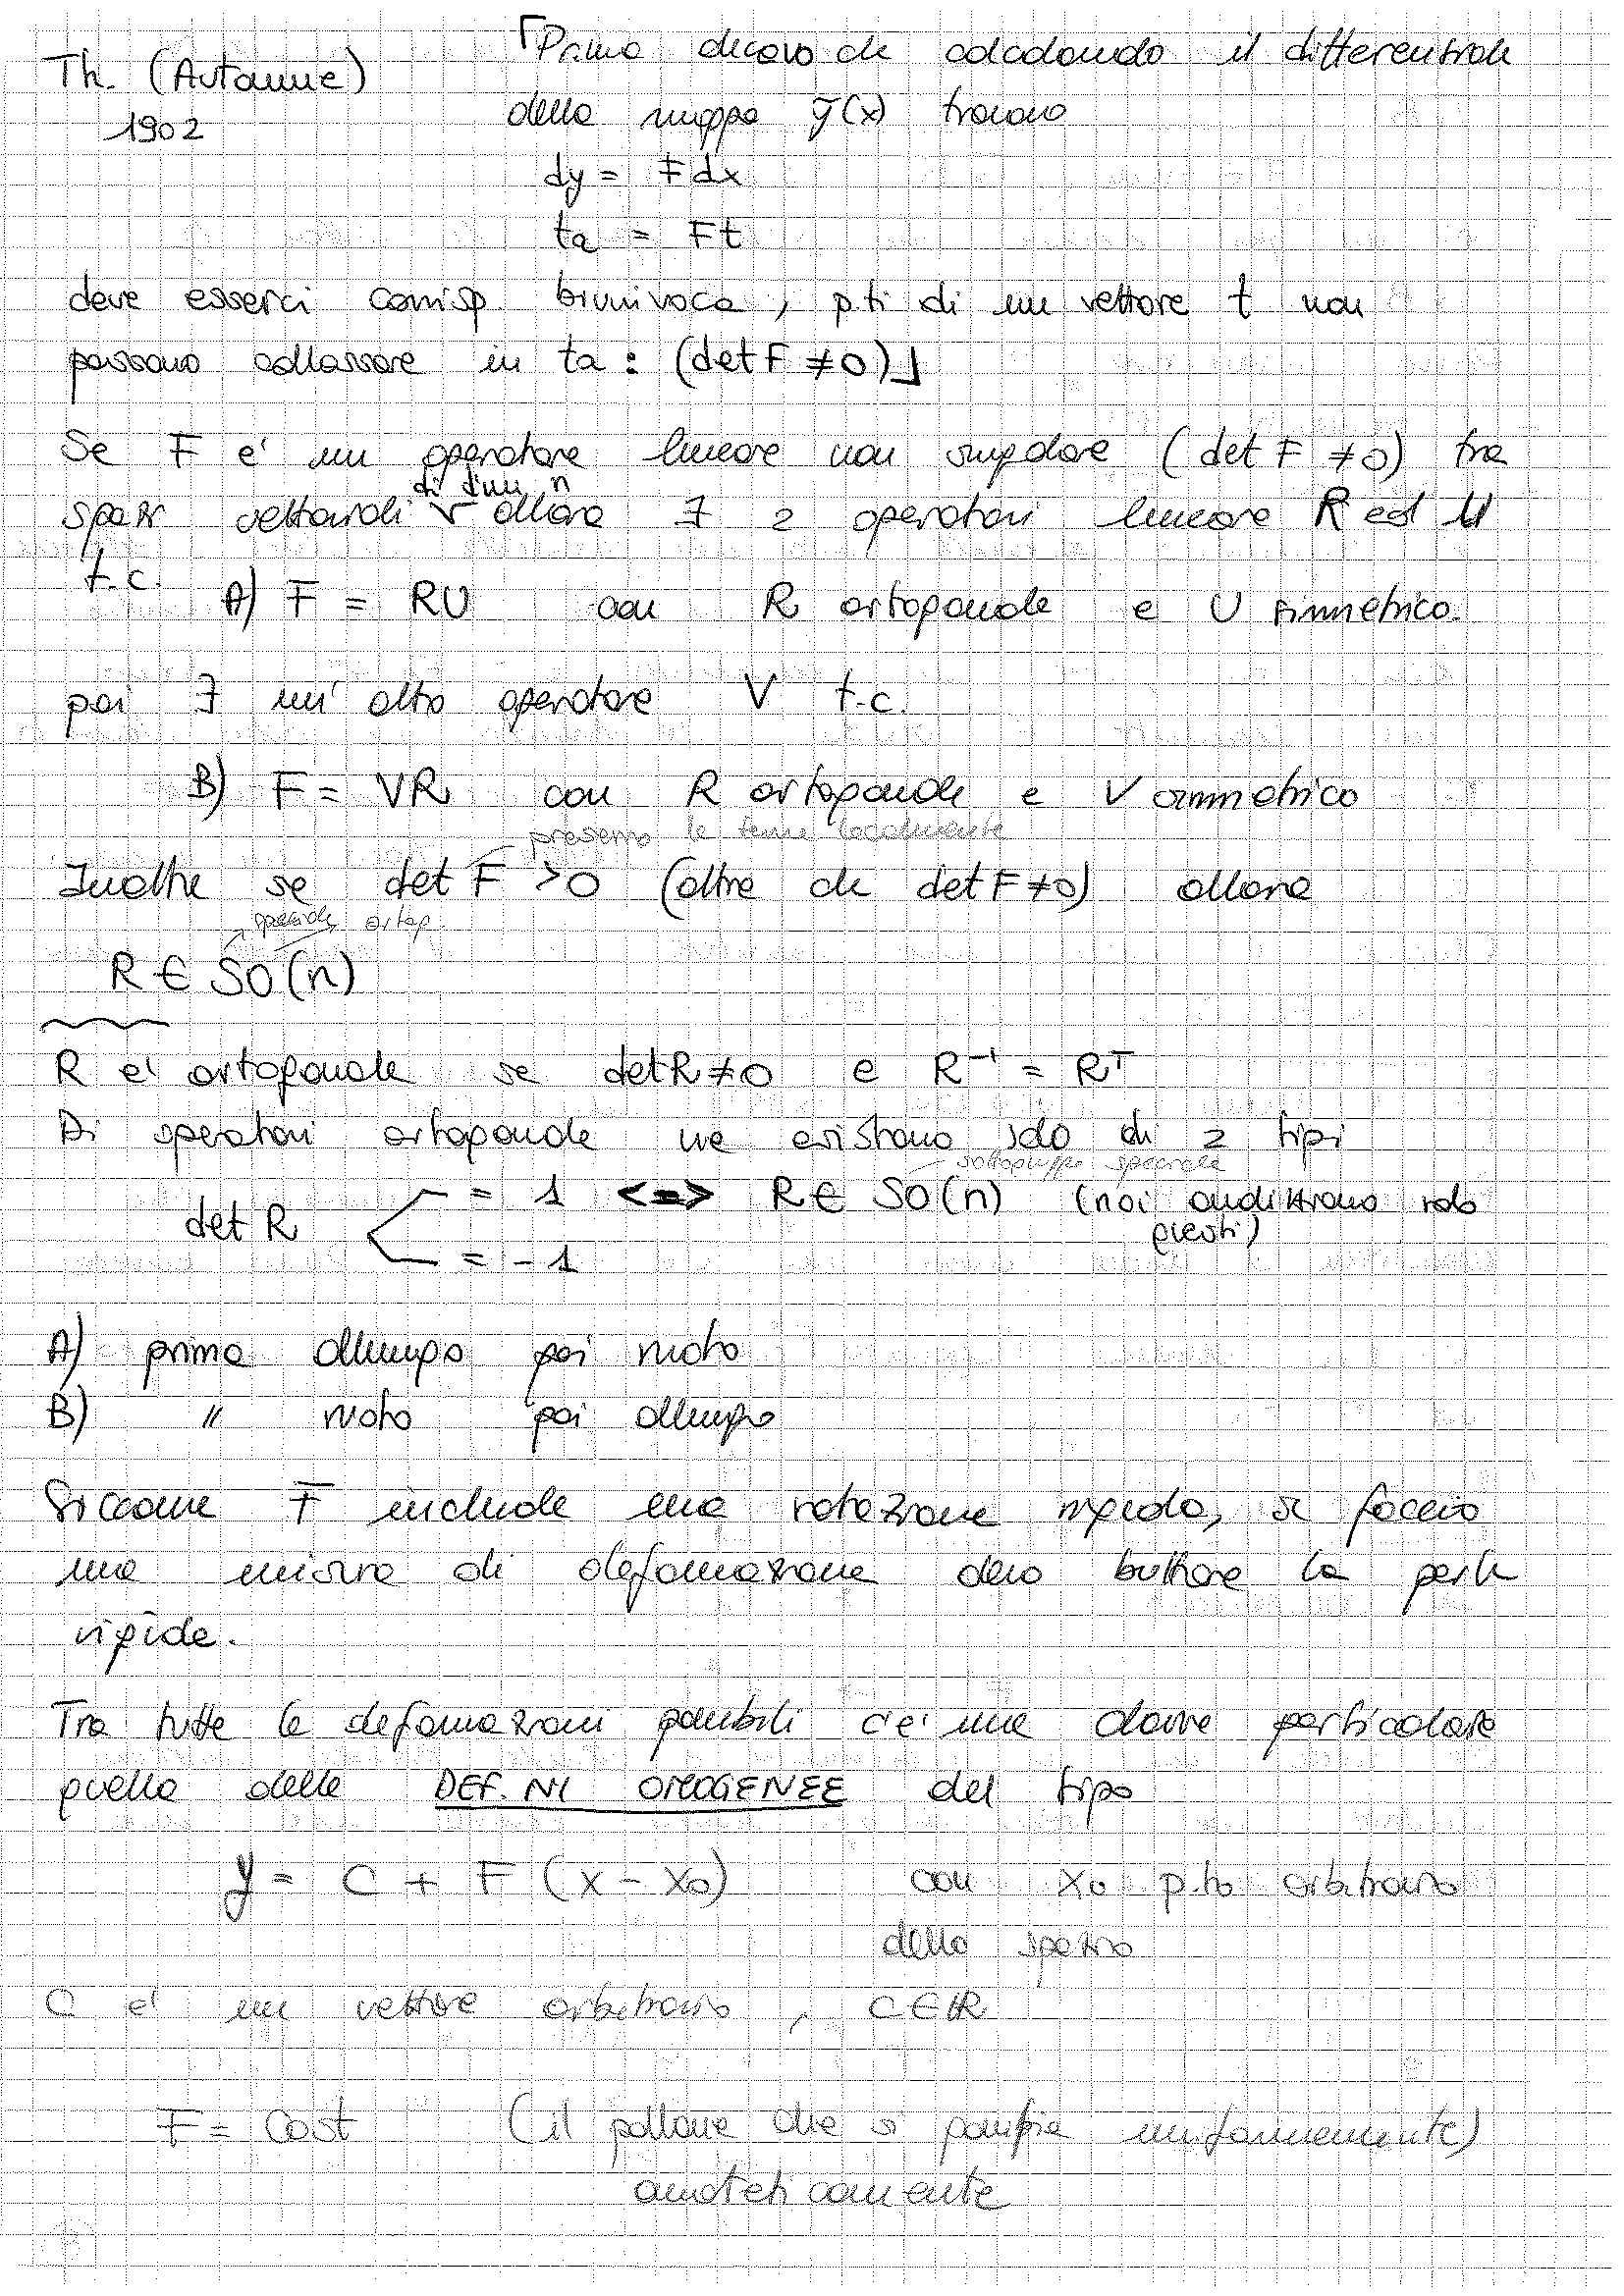 Th. (Autonne)
1902
⌈Prima dicevo che calcolando il differenziale
della mappa y(x) trovavo
dy = Fdx
ta = Ft
deve esserci corrisp. biunivoca, p.ti di un vettore t non
possono collassare in ta : (det F ≠ 0)⌋
Se F e' un operatore lineare non singolare (det F ≠ 0) tra
di dim n
spazi vettoriali V allora ∃ 2 operatori lineare R ed U
t.c.
A) F = RU con R ortogonale e U simmetrico.
poi ∃ un' altro operatore V t.c.
B) F = VR con R ortogonale e V simmetrico
preservo le terne localmente
Inoltre se det F > 0 (oltre che det F ≠ 0) allora
speciale ortog.
R ∈ SO(n)
R e' ortogonale se det R ≠ 0 e R⁻¹ = Rᵀ
Di operatori ortogonale ne esistono solo di 2 tipi
sottogruppo speciale
det R = 1 <=> R ∈ SO(n) (noi analizziamo solo
questi)
= -1
A) prima allungo poi ruoto
B) " ruoto poi allungo
Siccome F include una rotazione rigida, se faccio
una misura di deformazione devo buttare la parte
rigida.
Tra tutte le deformazioni possibili c'e' una classe particolare
quella delle DEF.NI OMOGENEE del tipo
y = C + F (x - x₀) con x₀ p.to arbitrario
dello spazio
C e' un vettore arbitrario , C ∈ R
F = cost (il pallone che si gonfia uniformemente)
omoteticamente